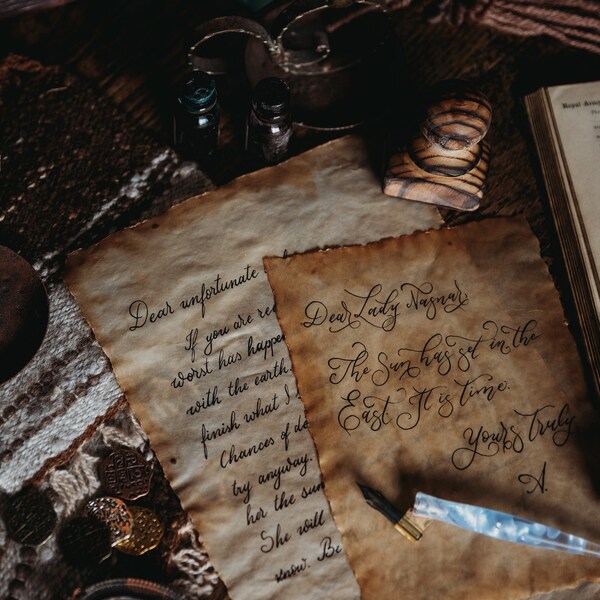 Dear unfortunate
If you are
worst has
with the earth
finish what I
Chances of
try anyway.
her the sun
She will
know. Be
Dear Lady Nasnar
The Sun has set in the
East. It is time.
Yours Truly
A.
Royal